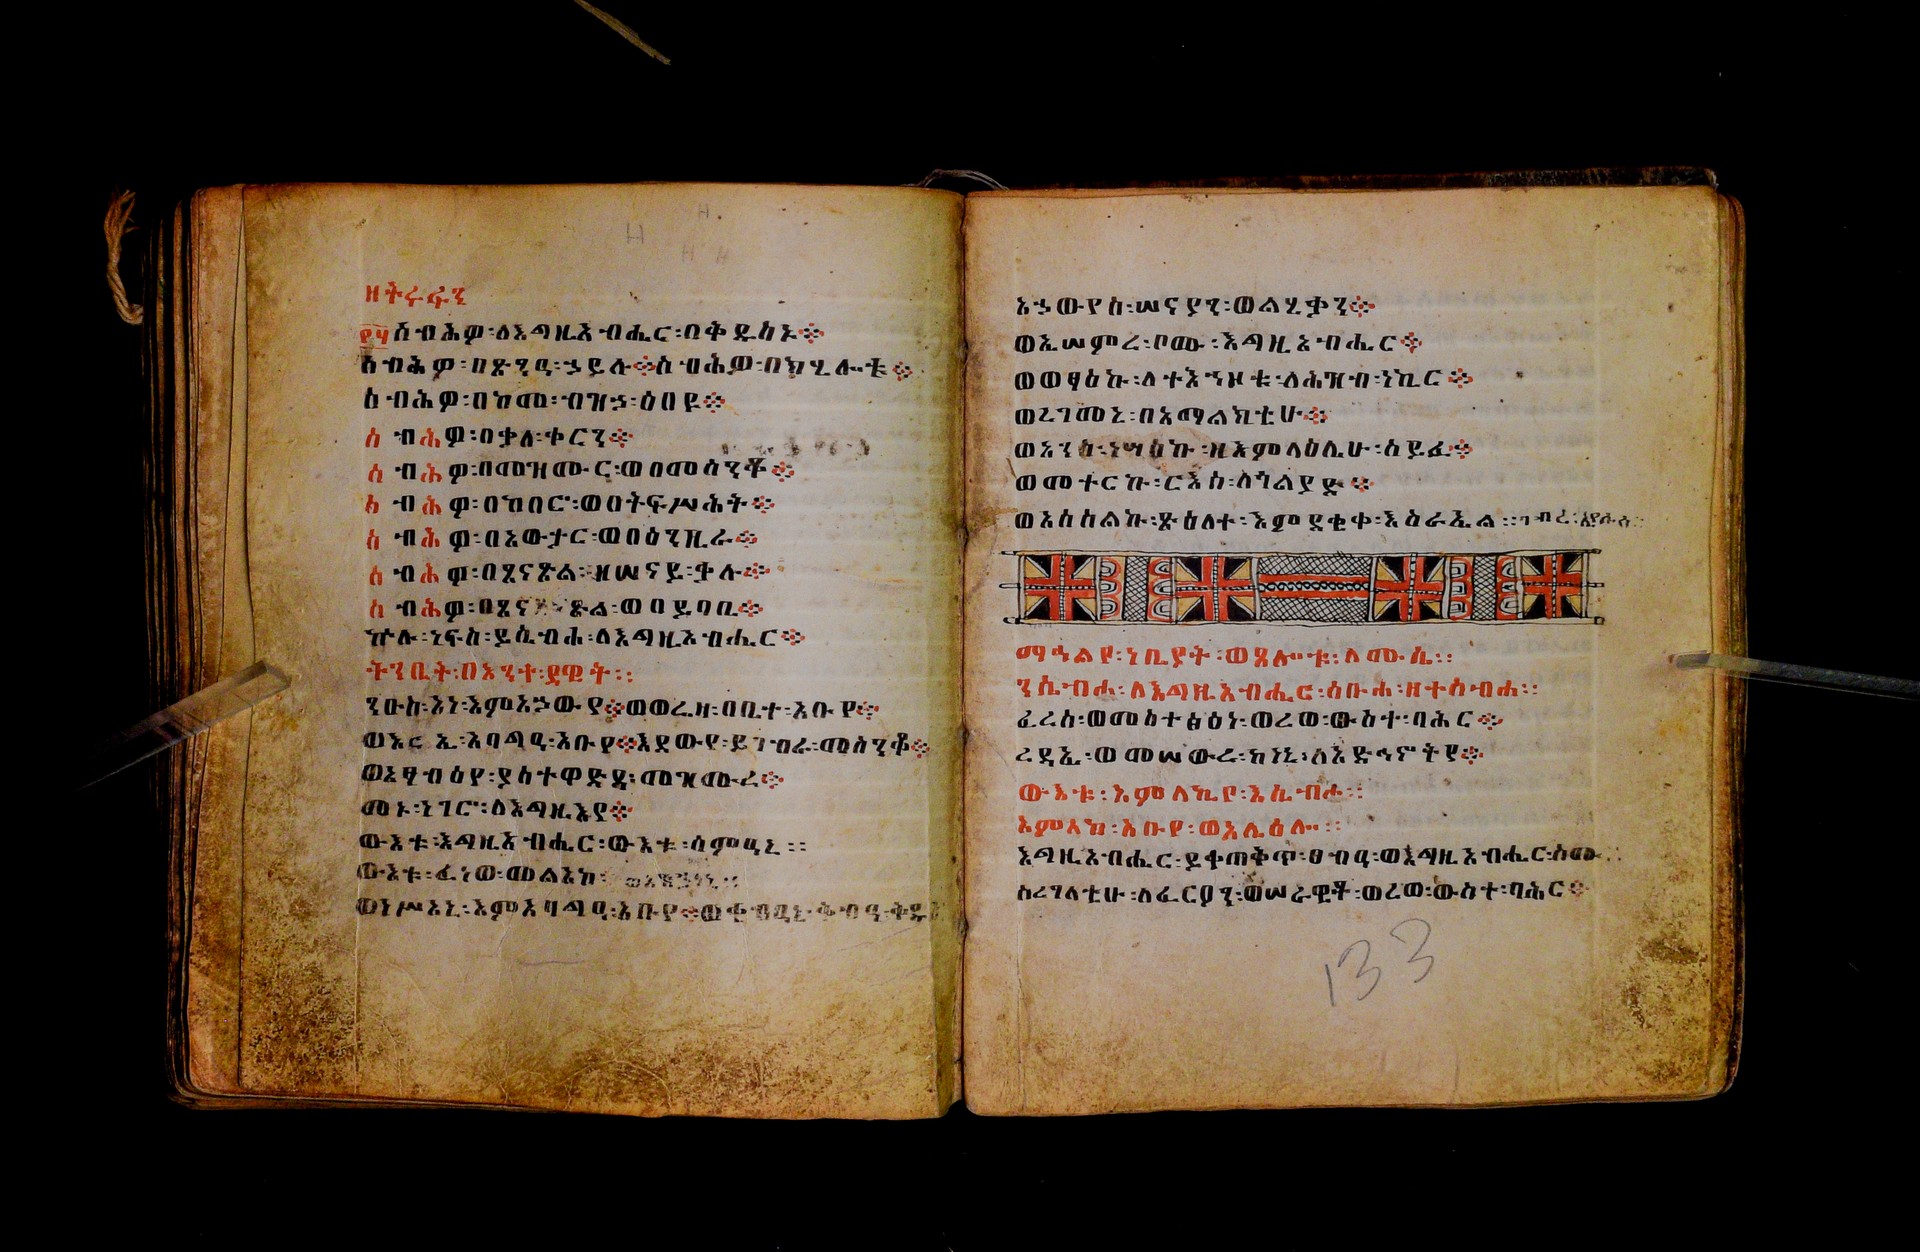 ፻፶ ስብሕዎ፡ለእግዚአብሔር፡በቅዱሳኑ፨
ስብሕዎ፡በጽንዓ፡ኃይሉ፨ስብሕዎ፡በክሂሎቱ፨
ስብሕዎ፡በከመ፡ብዝኃ፡ዕበዩ፨
ስብሕዎ፡በቃለ፡ቀርን፨
ስብሕዎ፡በመዝሙር፡ወበመሰንቆ፨
ስብሕዎ፡በከበሮ፡ወበትፍሥሕት፨
ስብሕዎ፡በአውታር፡ወበዕንዚራ፨
ስብሕዎ፡በጸናጽል፡ዘሠናይ፡ቃሉ፨
ስብሕዎ፡በጸናጽል፡ወበይባቤ፨
ኵሉ፡ነፍስ፡ይሴብሖ፡ለእግዚአብሔር፨
ትንቢት፡በእንተ፡ዳዊት፡፡
ንዑስ፡አነ፡እምአኃውየ፨ወወሬዛ፡በቤተ፡አቡየ፨
ወእርኢ፡አባግዒ፡አቡየ፨እደውየ፡ይገብራ፡መሰንቆ፨
ወአፃብዕየ፡ያስተዋድዳ፡መዝሙረ፨
መኑ፡ነገሮ፡ለእግዚእየ፨
ውእቱ፡እግዚአብሔር፡ውእቱ፡ሰምዓኒ፡፡
ውእቱ፡ፈነወ፡መልአኮ፡
ወነሥአኒ፡እምአባግዒ፡አቡየ፨ወቀብዓኒ፡ቅብዓ፡
አኃውየሰ፡ሠናያን፡ወልሂቃን፨
ወኢሠምረ፡ቦሙ፡እግዚአብሔር፨
ወወፃዕኩ፡ለተአኅዞቱ፡ለሕዝብ፡ነኪር፨
ወረገመኒ፡በአማልክቲሁ፨
ወአንሰ፡ነሣዕኩ፡ዘእምላዕሌሁ፡ሰይፈ፨
ወመተርኩ፡ርእሰ፡ለጎልያድ፨
ወአሰስልኩ፡ጽዕለተ፡እምደቂቀ፡እስራኤል፡፡
ማኅልየ፡ነቢያት፡ወጸሎቱ፡ለሙሴ፡፡
ንሴብሖ፡ለእግዚአብሔር፡ስቡሐ፡ዘተሰብሐ፡፡
ፈረሰ፡ወመስተፅዕነ፡ወረወ፡ውስተ፡ባሕር፨
ረዳኢ፡ወመሠውረ፡ኮነኒ፡ለአድኅኖትየ፨
ውእቱ፡አምላኪየ፡እሴብሖ፡፡
አምላከ፡አቡየ፡ወአሌዕሎ፡፡
እግዚአብሔር፡ይቀጠቅጥ፡ፀብዓ፡ወእግዚአብሔር፡ስሙ፡፡
ሰረገላቲሁ፡ለፈርዖን፡ወሠራዊቶ፡ወረወ፡ውስተ፡ባሕር፨
133